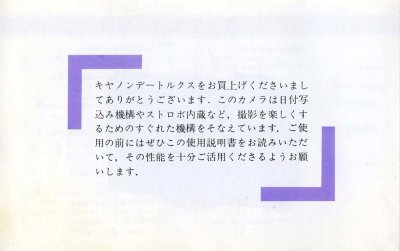 キヤノンデートルクスをお買上げくださいまし
てありがとうございます．このカメラは日付写
込み機構やストロボ内蔵など，撮影を楽しくす
るためのすぐれた機構をそなえています．ご使
用の前にはぜひこの使用説明書をお読みいただ
いて，その性能を十分ご活用くださるようお願
いします．